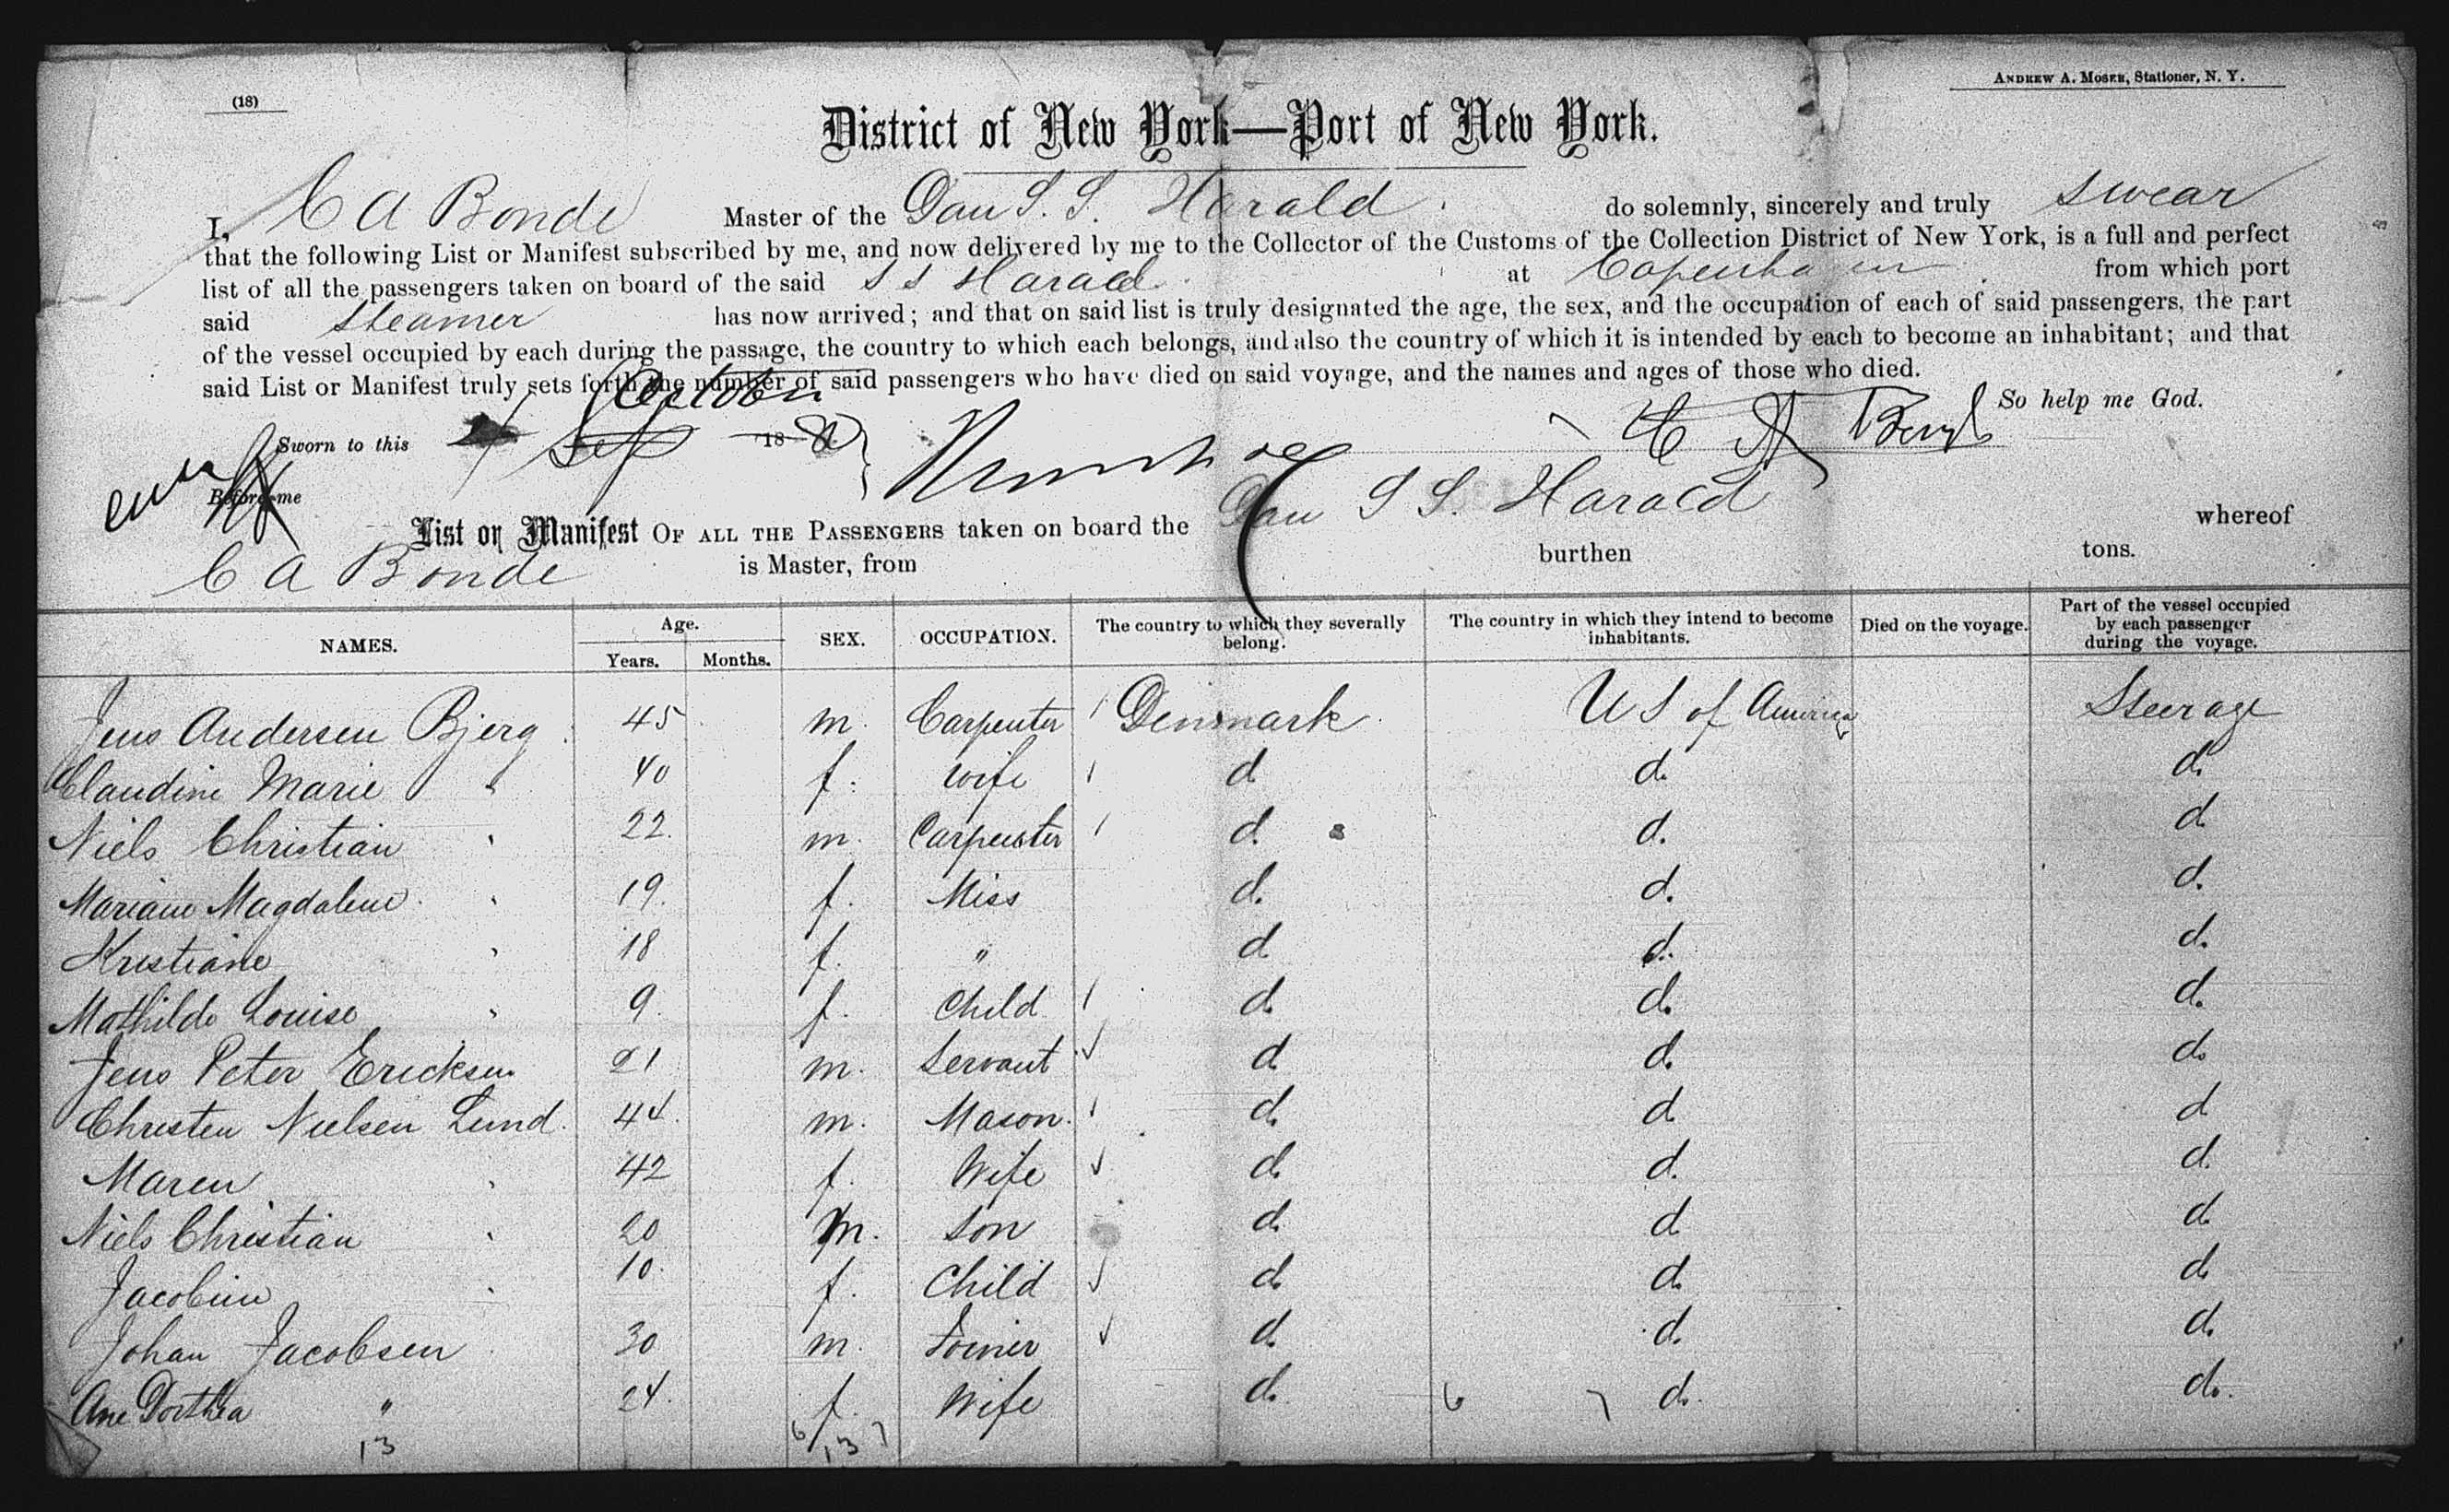 (18)
ANDREW A. MOSER, Stationer, N. Y.
District of New York—Port of New York.
I, C A Bonde Master of the Dan S. S. Harald do solemnly, sincerely and truly swear
that the following List or Manifest subscribed by me, and now delivered by me to the Collector of the Customs of the Collection District of New York, is a full and perfect
list of all the passengers taken on board of the said S S Harald at Copenhagen from which port
said Steamer has now arrived; and that on said list is truly designated the age, the sex, and the occupation of each of said passengers, the part
of the vessel occupied by each during the passage, the country to which each belongs, and also the country of which it is intended by each to become an inhabitant; and that
said List or Manifest truly sets forth the number of said passengers who have died on said voyage, and the names and ages of those who died.
So help me God.
October
Sworn to this Sep 18
Before me
List or Manifest OF ALL THE PASSENGERS taken on board the Dan S S. Harald whereof
C A Bonde is Master, from burthen tons.
NAMES. Age. Years. Months. SEX. OCCUPATION. The country to which they severally belong. The country in which they intend to become inhabitants. Died on the voyage. Part of the vessel occupied by each passenger during the voyage.
Jens Andersen Bjerg 45 m. Carpenter Denmark U S of America Steerage
Claudine Marie " 40 f. wife d d. d.
Niels Christian " 22. m. Carpenter d. d. d
Mariane Magdalene " 19. f. Miss d. d. d.
Kristiane " 18 f. " d d. d.
Mathilde Louise " 9. f. Child d. d. d.
Jens Peter Ericksen 21 m. Servant d d. d.
Christen Nielsen Lund. 44. m. Mason. d. d d
Maren " 42 f. Wife d. d. d.
Niels Christian " 20 m. Son d. d d.
Jacobine " 10. f. Child d. d. d.
Johan Jacobsen 30 m. Joiner d. d. d.
Ane Dorthea " 24. f. Wife d. 6 7 d. d.
13 6/13 7